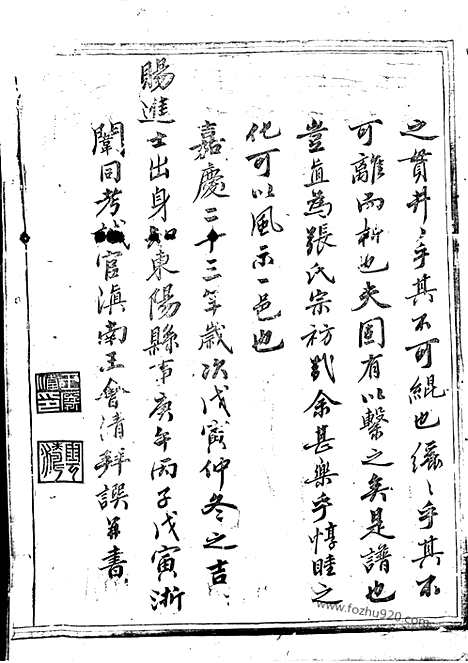 之貫井〻乎其不可緄也繩〻乎其不
可離而析也夫固有以繫之矣是譜也
豈直為張氏宗祊幸余甚樂乎惇睦之
化可以風示一邑也
嘉慶二十三年歲次戊寅仲冬之吉
賜進士出身知東陽縣事庚午丙子戊寅浙
闈同考試官滇南王會清拜譔並書
www.fozhu920.com